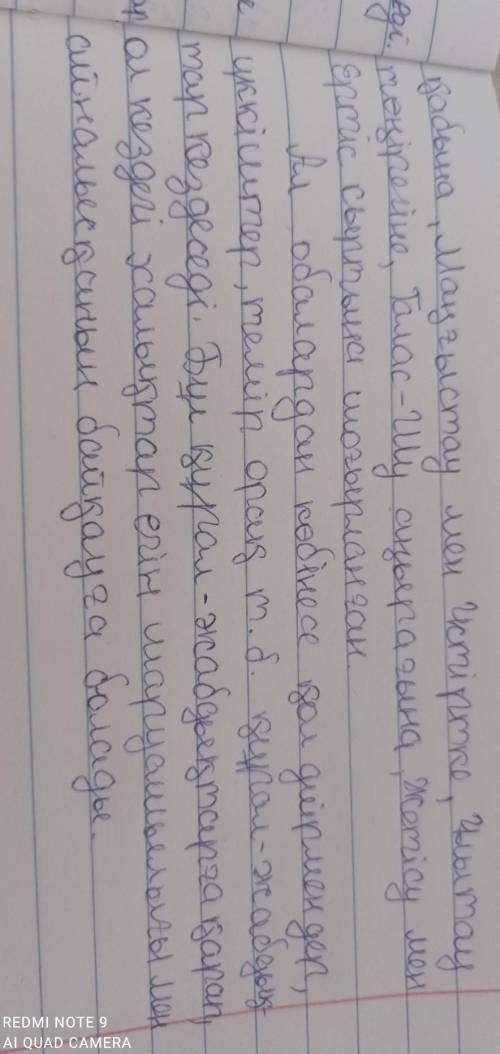 қабына, Маңғыстау мен Үстіртке, Ұлытау
төңірегіне, Талас-Шу аңғарағына, Жетісу мен
Ертіс сыртына шоғырланған.
Ал обалардан көбінесе қол диірмендер,
үккіштер, темір орақ т.б. құрал-жабдық-
тар кездеседі. Бұл құрал-жабдықтарға қарап,
ол кездегі халықтар егін шаруашылығы мен
айналысқанын байқауға болады.
REDMI NOTE 9
AI QUAD CAMERA